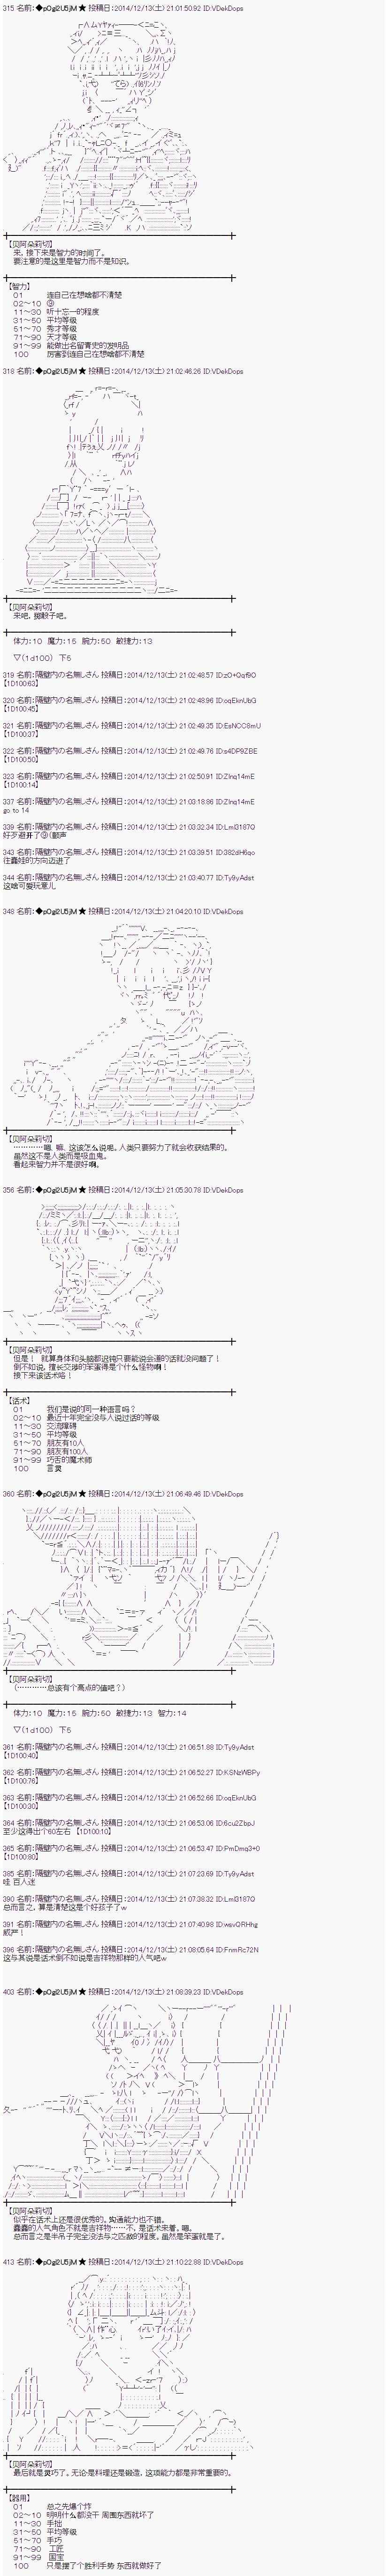 315 名前:◆pOgi2U5jM ★ 投稿日:2014/12/13(土) 21:01:50.92 ID:VDekDops
【贝阿朵莉切】
来，接下来是智力的时间了。
要注意的是这里是智力而不是知识。
【智力】
01 连自己在想啥都不清楚
02～10 ⑨
11～30 听十忘一的程度
31～50 平均等级
51～70 秀才等级
71～90 天才等级
91～99 能做出名留青史的发明品
100 厉害到连自己在想啥都不清楚
318 名前:◆pOgi2U5jM ★ 投稿日:2014/12/13(土) 21:02:46.26 ID:VDekDops
【贝阿朵莉切】
来吧，掷骰子吧。
体力:10 魔力:15 腕力:50 敏捷力:13
▽(1d100) 下5
319 名前:隔壁内の名無しさん 投稿日:2014/12/13(土) 21:02:48.57 ID:zO+Oqf9O
【1D100:63】
320 名前:隔壁内の名無しさん 投稿日:2014/12/13(土) 21:02:48.96 ID:oqEknUbG
【1D100:45】
321 名前:隔壁内の名無しさん 投稿日:2014/12/13(土) 21:02:49.35 ID:EsNCC8mU
【1D100:37】
322 名前:隔壁内の名無しさん 投稿日:2014/12/13(土) 21:02:49.76 ID:s4DP9ZBE
【1D100:50】
323 名前:隔壁内の名無しさん 投稿日:2014/12/13(土) 21:02:50.91 ID:Zlnq14mE
【1D100:14】
337 名前:隔壁内の名無しさん 投稿日:2014/12/13(土) 21:03:18.86 ID:Zlnq14mE
go to 14
339 名前:隔壁内の名無しさん 投稿日:2014/12/13(土) 21:03:32.34 ID:LmI3187Q
好歹避开了⑨(颤声
343 名前:隔壁内の名無しさん 投稿日:2014/12/13(土) 21:03:39.51 ID:382dH6qo
往蠢娃的方向迈进了
344 名前:隔壁内の名無しさん 投稿日:2014/12/13(土) 21:03:40.77 ID:Ty9yAdst
这啥可爱玩意儿
348 名前:◆pOgi2U5jM ★ 投稿日:2014/12/13(土) 21:04:20.10 ID:VDekDops
【贝阿朵莉切】
…………嘛、嘛，该这怎么说呢。人类只要努力了就会收获结果的。
虽然这不是人类而是吸血鬼。
看起来智力并不是很好啊。
356 名前:◆pOgi2U5jM ★ 投稿日:2014/12/13(土) 21:05:30.78 ID:VDekDops
【贝阿朵莉切】
但是！ 就算身体和头脑都迟钝只要能说会道的话就没问题了！
倒不如说，擅长交涉的笨蛋得是个什么怪物啊！
接下来该话术咯！
【话术】
01 我们是说的同一种语言吗？
02～10 最近十年完全没与人说过话的等级
11～30 交流障碍
31～50 平均等级
51～70 朋友有10人
71～90 朋友有100人
91～99 巧舌的魔术师
100 言灵
360 名前:◆pOgi2U5jM ★ 投稿日:2014/12/13(土) 21:06:49.46 ID:VDekDops
【贝阿朵莉切】
(…………总该有个亮点的值吧？)
体力:10 魔力:15 腕力:50 敏捷力:13 智力:14
▽(1d100) 下5
361 名前:隔壁内の名無しさん 投稿日:2014/12/13(土) 21:06:51.88 ID:Ty9yAdst
【1D100:40】
362 名前:隔壁内の名無しさん 投稿日:2014/12/13(土) 21:06:52.27 ID:KSNzWBPy
【1D100:76】
363 名前:隔壁内の名無しさん 投稿日:2014/12/13(土) 21:06:52.66 ID:oqEknUbG
【1D100:30】
364 名前:隔壁内の名無しさん 投稿日:2014/12/13(土) 21:06:53.06 ID:6cu2ZbpJ
至少这得出个60左右 【1D100:10】
365 名前:隔壁内の名無しさん 投稿日:2014/12/13(土) 21:06:53.47 ID:PmDmq3+0
【1D100:80】
385 名前:隔壁内の名無しさん 投稿日:2014/12/13(土) 21:07:23.69 ID:Ty9yAdst
哇 百人迷
390 名前:隔壁内の名無しさん 投稿日:2014/12/13(土) 21:07:38.32 ID:LmI3187Q
总而言之，算是清楚这是个好孩子了w
391 名前:隔壁内の名無しさん 投稿日:2014/12/13(土) 21:07:40.98 ID:wsvQRHhg
威严！
396 名前:隔壁内の名無しさん 投稿日:2014/12/13(土) 21:08:05.64 ID:FnmRc72N
这与其说是话术倒不如说是吉祥物那样的人气吧w
403 名前:◆pOgi2U5jM ★ 投稿日:2014/12/13(土) 21:08:39.23 ID:VDekDops
【贝阿朵莉切】
似乎在话术上还是很优秀的。沟通能力也不错。
蠢蠢的人气角色不就是吉祥物……不，是话术来着。嗯。
总而言之是半吊子完全没法与之匹敌的程度。虽然是笨蛋就是了。
413 名前:◆pOgi2U5jM ★ 投稿日:2014/12/13(土) 21:10:22.88 ID:VDekDops
【贝阿朵莉切】
最后就是灵巧了。无论是料理还是锻造，这项能力都是非常重要的。
【器用】
01 总之先爆个炸
02～10 明明什么都没干 周围东西就坏了
11～30 手拙
31～50 平均等级
51～70 手巧
71～90 工匠
91～99 国宝
100 只是摆了个胜利手势 东西就做好了